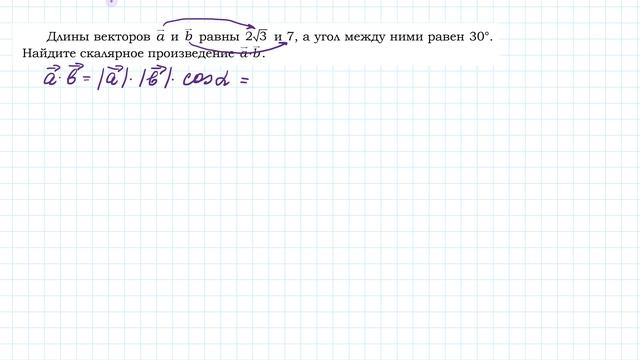 Длины векторов a⃗ и b⃗ равны 2√3 и 7, а угол между ними равен 30°.
Найдите скалярное произведение a⃗·b⃗.
a⃗·b⃗ = |a⃗|·|b⃗|·cosα =